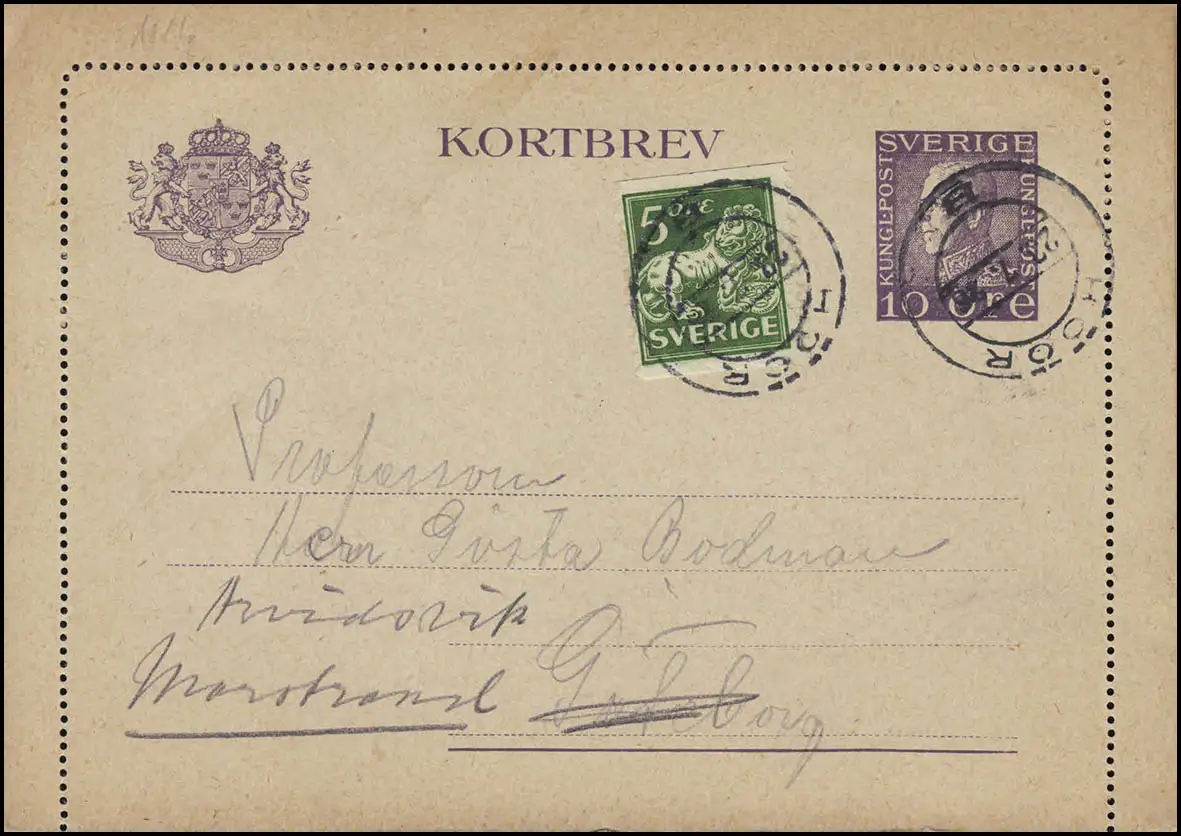 KORTBREV
SVERIGE
KUNGL·POST
10 ÖRE
5 ÖRE
SVERIGE
HÖÖR
HÖÖR
Professorn
Herr Gösta Bodman
Arvidsvik
Marstrand Göteborg